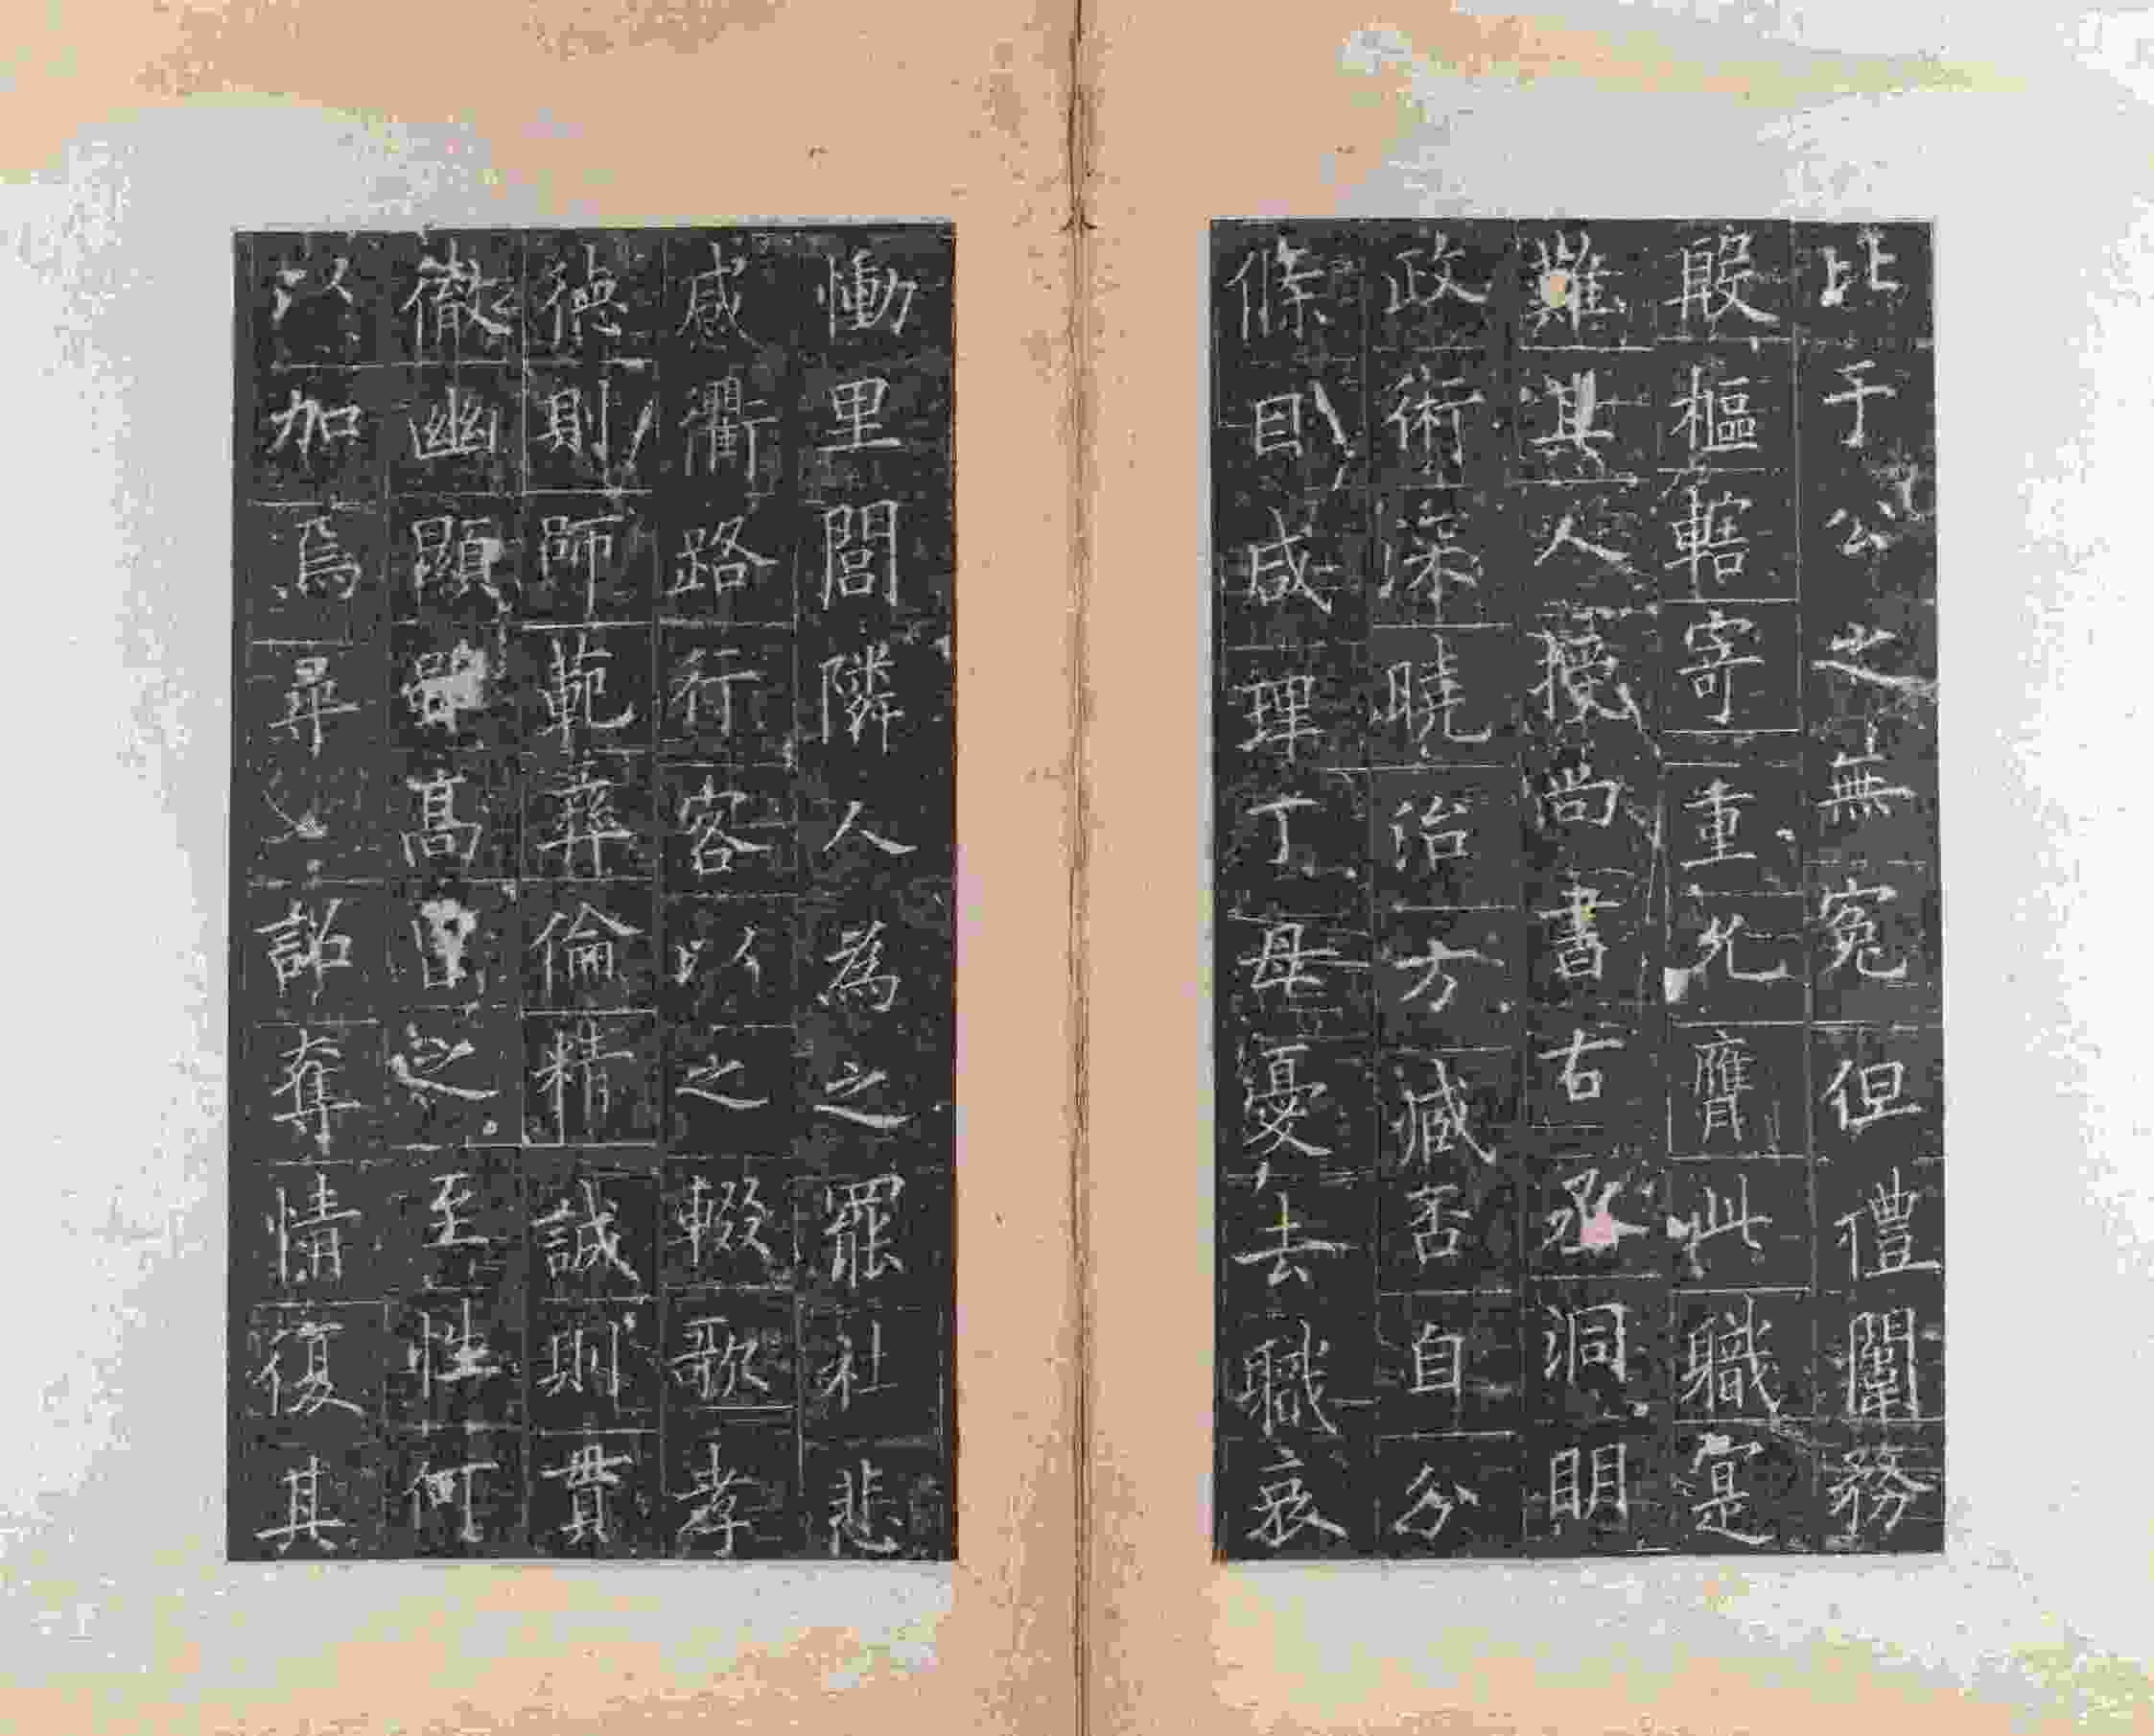 比于公之無寃但禮闈務
殷樞轄寄重允膺此職寔
難其人授尚書右丞洞明
政術深曉治方臧否自分
條目咸理丁母憂去職哀
慟里閭隣人為之罷社悲
感衢路行客以之輟歌孝
德則師範彝倫精誠則貫
徹幽顯雖高曾之至性何
以加焉尋詔奪情復其